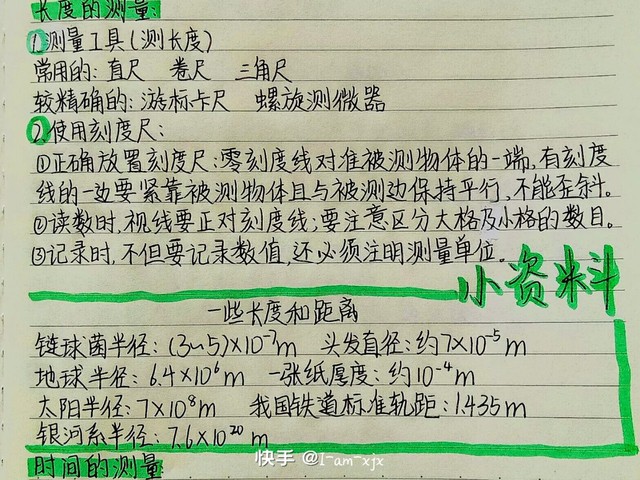 长度的测量:
1.测量工具(测长度)
常用的:直尺 卷尺 三角尺
较精确的:游标卡尺 螺旋测微器
2.使用刻度尺:
①正确放置刻度尺:零刻度线对准被测物体的一端,有刻度
线的一边要紧靠被测物体且与被测边保持平行,不能歪斜。
②读数时,视线要正对刻度线;要注意区分大格及小格的数目。
③记录时,不但要记录数值,还必须注明测量单位。
小资料
一些长度和距离
链球菌半径:(3~5)×10⁻⁷m 头发直径:约7×10⁻⁵m
地球半径:6.4×10⁶m 一张纸厚度:约10⁻⁴m
太阳半径:7×10⁸m 我国铁道标准轨距:1.435m
银河系半径:7.6×10²⁰m
快手 @I-am-xjx
时间的测量